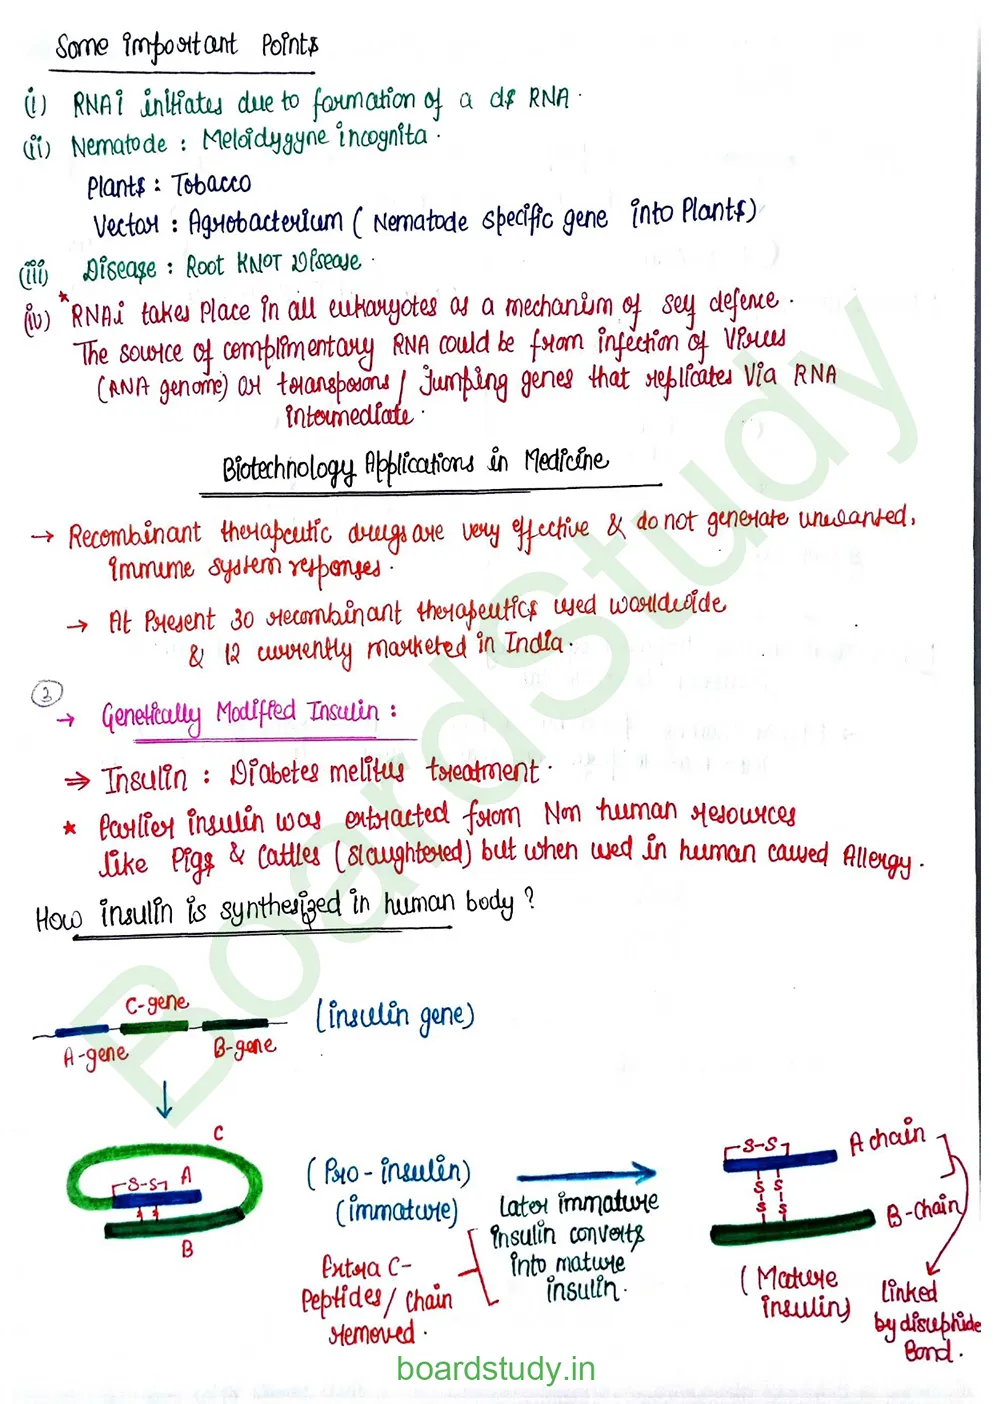 Some important Points
(i) RNAi initiates due to formation of a ds RNA.
(ii) Nematode : Meloidygyne incognita.
Plants : Tobacco
Vector : Agrobacterium ( Nematode specific gene into Plants)
(iii) Disease : Root KNOT Disease.
(iv) * RNAi takes Place in all eukaryotes as a mechanism of sey defence.
The source of complimentary RNA could be from infection of Virus
(RNA genome) or transposons / Jumping genes that replicates Via RNA
intermediate.
Biotechnology Applications in Medicine
→ Recombinant therapeutic drugs are very effective & do not generate unwanted,
immune system responses.
→ At Present 30 recombinant therapeutics used worldwide
& 12 currently marketed in India.
3
→ Genetically Modified Insulin :
⇒ Insulin : Diabetes melitus treatment.
* Earlier insulin was extracted from Non human resources
like Pigs & Cattles (slaughtered) but when used in human caused Allergy.
How insulin is synthesized in human body ?
C-gene
(insulin gene)
A-gene
B-gene
C
S-S
A
B
(Pro-insulin)
(immature)
Extra C-
Peptides/ Chain
removed.
Later immature
insulin converts
into mature
insulin.
S-S
A chain
S S
S S
B-Chain
(Mature
insulin)
Linked
by disulphide
Bond.
boardstudy.in
BoardStudy